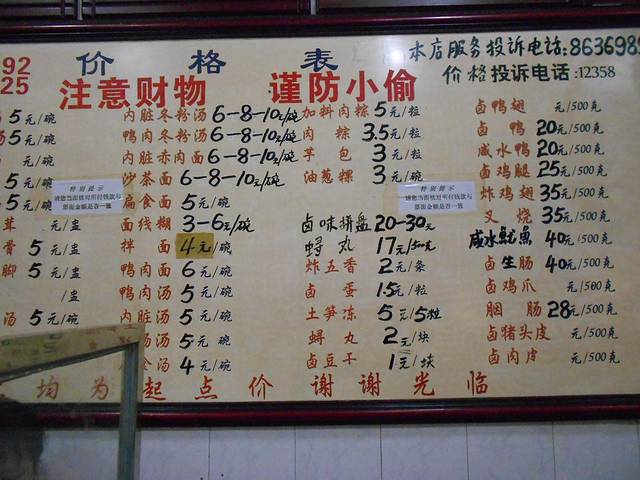 本店服务投诉电话:863698
92 价格表
25 注意财物 谨防小偷 价格投诉电话:12358
5元/碗 内脏冬粉汤 6-8-10元/碗 加料肉粽 5元/粒 卤鸭翅 元/500克
汤 5元/碗 鸭肉冬粉汤 6-8-10元/碗 肉粽 3.5元/粒 卤鸭 20元/500克
元/碗 内脏赤肉面 6-8-10元/碗 芋包 3元/粒 咸水鸭 20元/500克
5元/碗 沙茶面 6-8-10元/碗 油葱粿 3元/粒 卤鸡腿 25元/500克
特别提示
请您当面核对所付钱款与
票面金额是否一致
特别提示
请您当面核对所付钱款与
票面金额是否一致
5元/碗 扁食面 5元/碗 炸鸡翅 35元/500克
茸 元/盅 面线糊 3-6元/碗 卤味拼盘 20-30元 叉烧 35元/500克
骨 5元/盅 拌面 4元/碗 蟳丸 17元/500克 咸水鱿鱼 40元/500克
脚 5元/盅 鸭肉面 6元/碗 炸五香 2元/条 卤生肠 40元/500克
/盅 鸭肉汤 5元/碗 卤蛋 1.5元/粒 卤鸡爪 元/500克
汤 5元/碗 内脏汤 5元/碗 土笋冻 5元/5粒 胭肠 28元/500克
汤 5元/碗 蟳丸 2元/块 卤猪头皮 元/500克
食汤 4元/碗 卤豆干 1元/块 卤肉皮 元/500克
均为起点价 谢谢光临